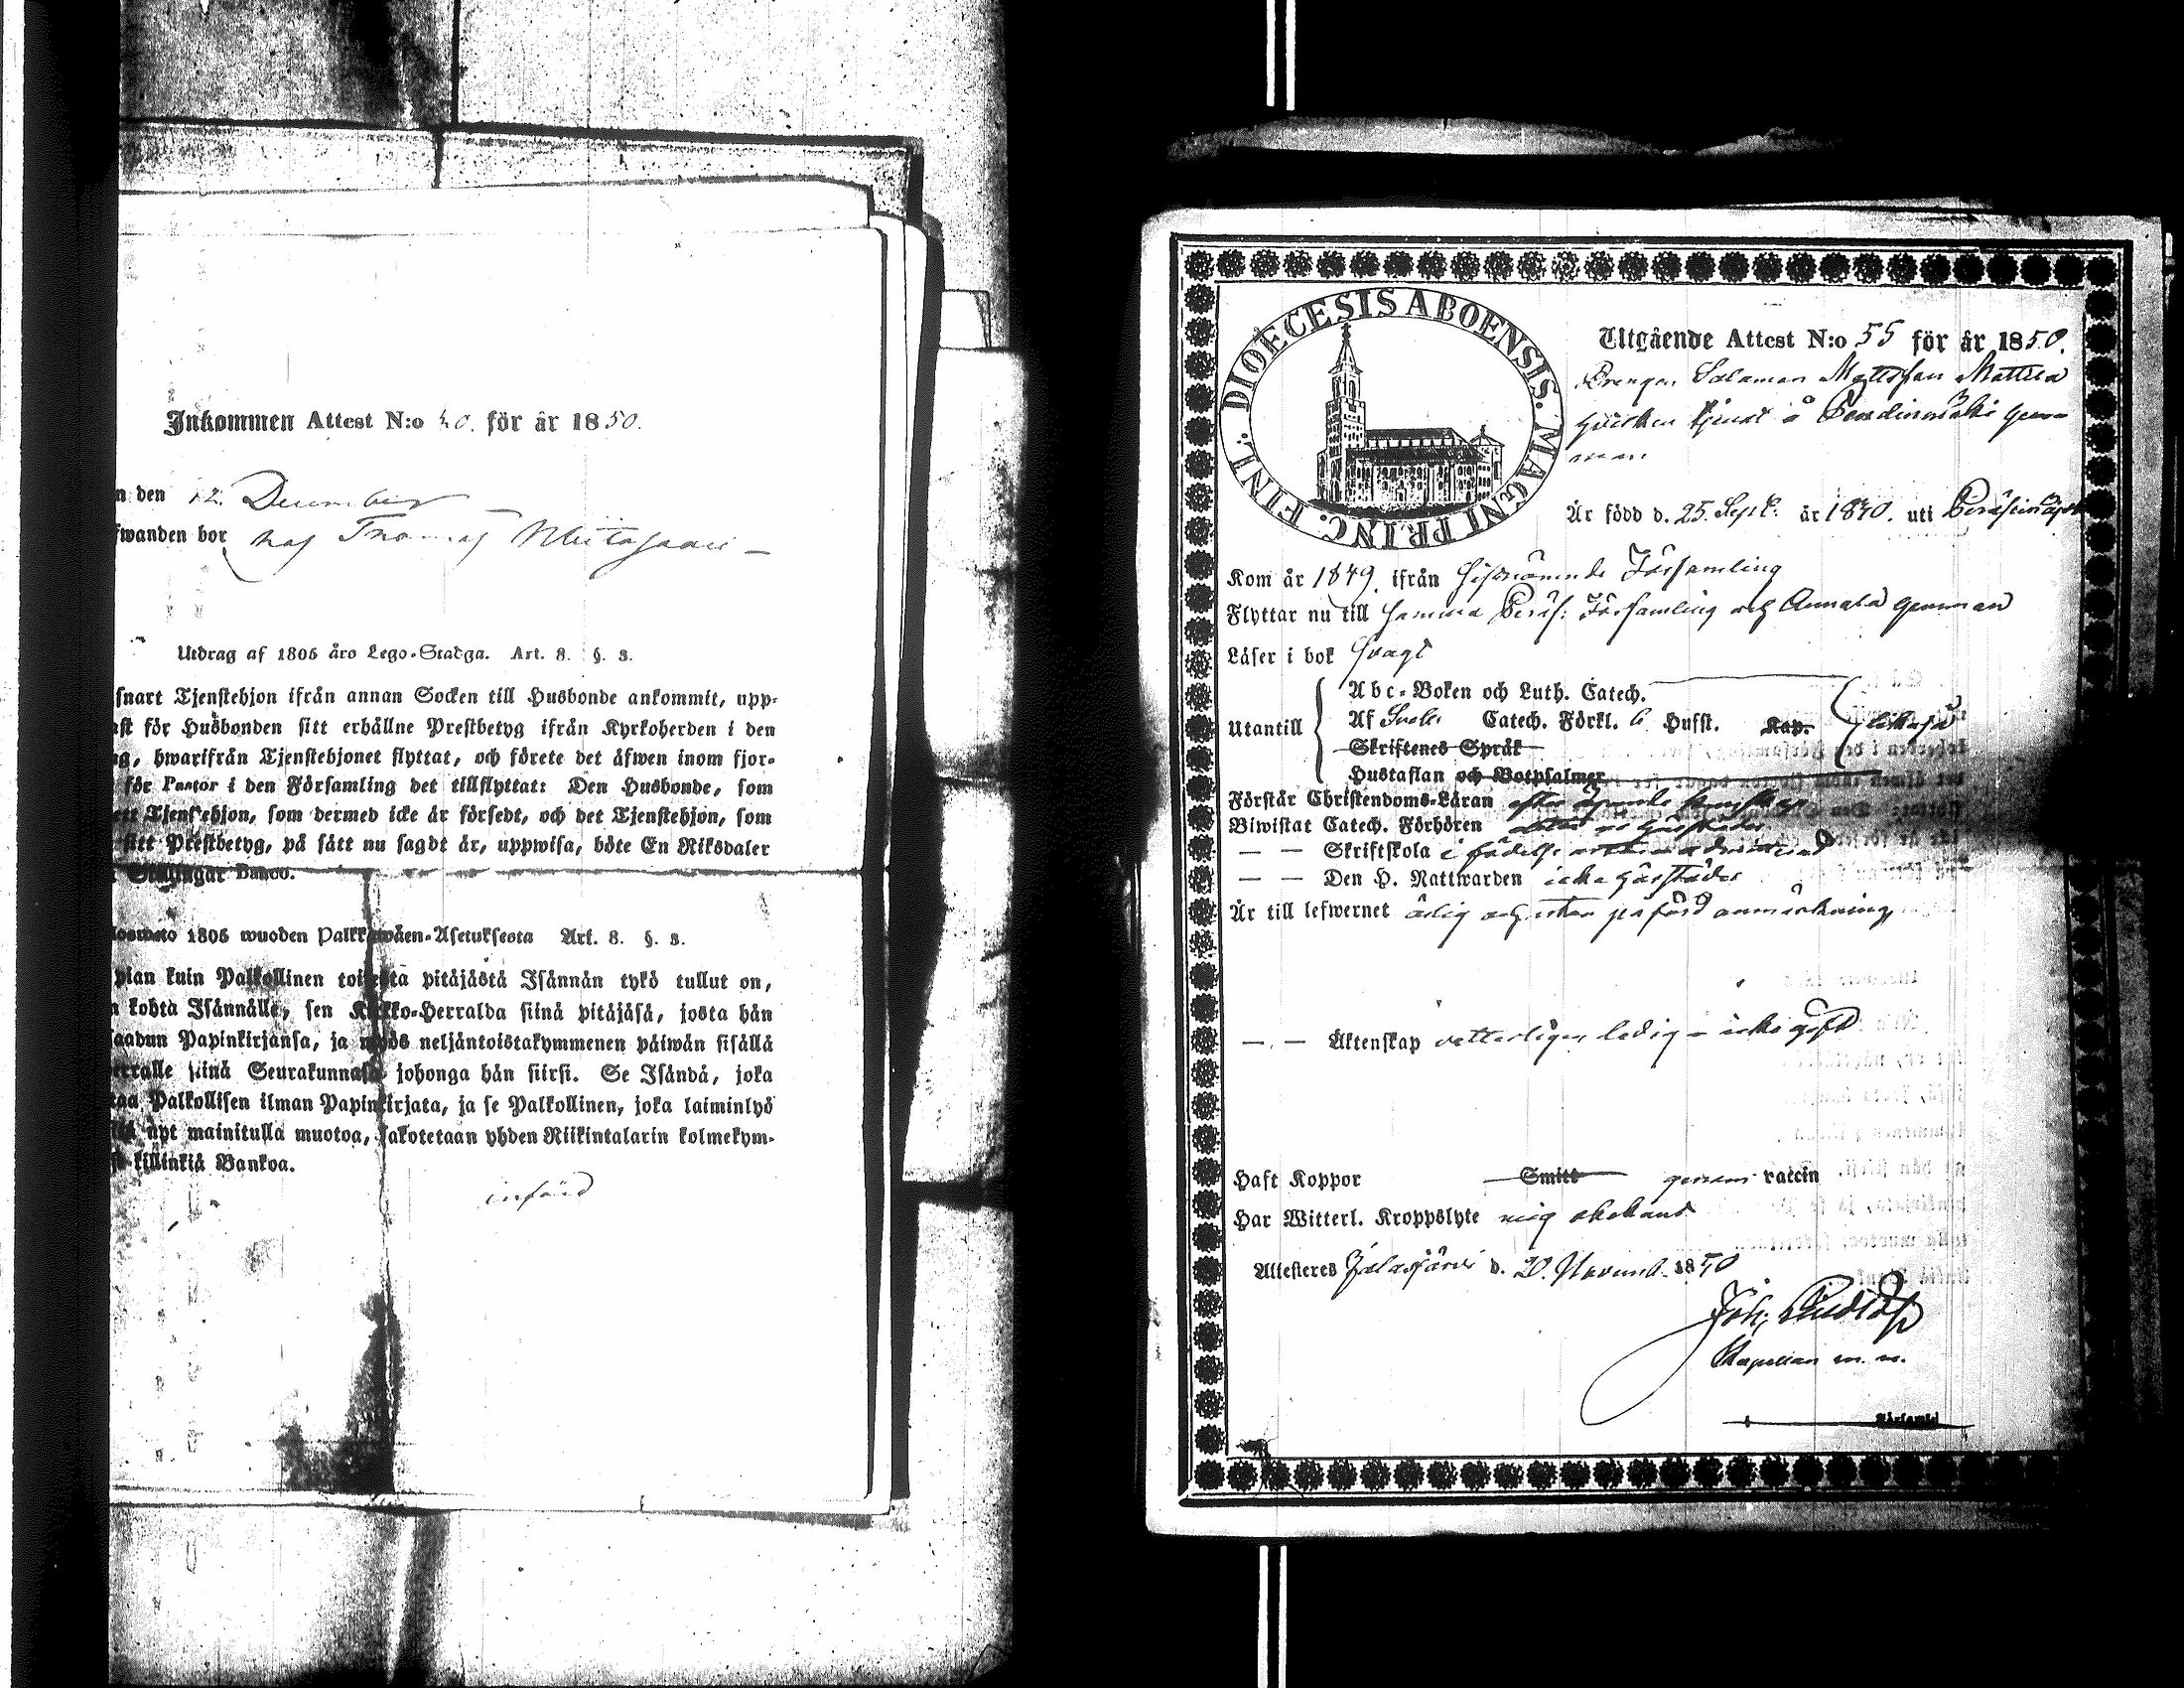 Inkommen Attest N:o 40. för år 1850.
n den 12. December
fwanden bor hos Thomas
Utdrag af 1805 års Lego-Stadga. Art. 8. §. 3.
snart Tjenstehjon ifrån annan Socken till Husbonde ankommit, upp-
ast för Husbonden sitt erhållne Prestbetyg ifrån Kyrkoherden i den
ng, hwarifrån Tjenstehjonet flyttat, och förete det äfwen inom fjor-
för Pastor i den Församling det tillflyttat: Den Husbonde, som
ett Tjenstehjon, som dermed icke är försedt, och det Tjenstehjon, som
sitt Prestbetyg, på sätt nu sagdt är, uppwisa, böte En Riksdaler
Skillingar Banco.
1805 wuoden Palkkawäen-Asetuksesta Art. 8. §. 3.
pian kuin Palkollinen toisesta pitäjästä Isännän tykö tullut on,
n kohta Isännälle, sen Kirkko-Herralda siinä pitäjäsä, josta hän
saadun Papinkirjansa, ja myös neljäntoistakymmenen päiwän sisällä
erralle siinä Seurakunnasa johonga hän siirsi. Se Isändä, joka
taa Palkollisen ilman Papinkirjata, ja se Palkollinen, joka laiminlyö
nyt mainitulla muotoa, sakotetaan yhden Riikintalarin kolmekym-
killinkiä Bankoa.
införd
DIOECESIS ABOENSIS. MAGNI PRINC. FINL.
Utgående Attest N:o 55 för år 1850.
Drengen Salomon Mattsson Mattila
tjenst å
man
Är född d. 25. Sept. år 1830. uti
Kom år 1849. ifrån sistnämnde Församling
Flyttar nu till samma Peräs: Församling och Annala hemman
Läser i bok svagt
Utantill
Abc-Boken och Luth. Catech.
Af Catech. Förkl. 6 Hufst. Kap.
Skriftenes Språk
Hustaflan och Botpsalmer
Förstår Christendoms-Läran efter ägande kunskap
Biwistat Catech. Förhören
— — Skriftskola i
— — Den H. Nattwarden icke härstädes
Är till lefwernet ärlig och utan påförd anmärkning
— . — Äktenskap vetterligen ledig – icke gift
Haft Koppor Smitt genom vaccin
Har Witterl. Kroppslyte mig obekant
Attesteres Jalasjärvi d. 20. Novemb. 1850
Joh.
Kapellan m. m.
Församl.